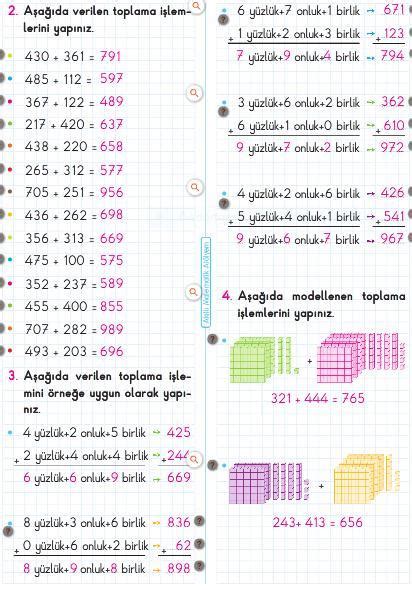 2. Aşağıda verilen toplama işlem-
lerini yapınız.
430 + 361 = 791
485 + 112 = 597
367 + 122 = 489
217 + 420 = 637
438 + 220 = 658
265 + 312 = 577
705 + 251 = 956
436 + 262 = 698
356 + 313 = 669
475 + 100 = 575
352 + 237 = 589
455 + 400 = 855
707 + 282 = 989
493 + 203 = 696
3. Aşağıda verilen toplama işle-
mini örneğe uygun olarak yapı-
nız.
4 yüzlük+2 onluk+5 birlik → 425
+ 2 yüzlük+4 onluk+4 birlik → + 244
6 yüzlük+6 onluk+9 birlik → 669
8 yüzlük+3 onluk+6 birlik → 836
+ 0 yüzlük+6 onluk+2 birlik → + 62
8 yüzlük+9 onluk+8 birlik → 898
6 yüzlük+7 onluk+1 birlik → 671
+ 1 yüzlük+2 onluk+3 birlik → + 123
7 yüzlük+9 onluk+4 birlik → 794
3 yüzlük+6 onluk+2 birlik → 362
+ 6 yüzlük+1 onluk+0 birlik → + 610
9 yüzlük+7 onluk+2 birlik → 972
4 yüzlük+2 onluk+6 birlik → 426
+ 5 yüzlük+4 onluk+1 birlik → + 541
9 yüzlük+6 onluk+7 birlik → 967
4. Aşağıda modellenen toplama
işlemlerini yapınız.
+
321 + 444 = 765
+
243+ 413 = 656